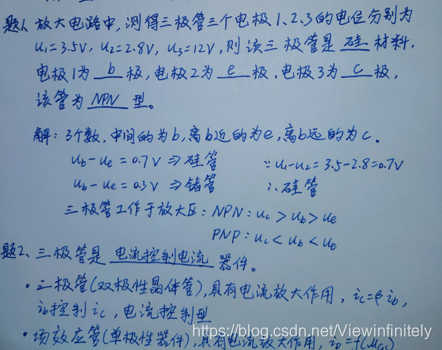 题1、放大电路中,测得三极管三个电极1、2、3的电位分别为
U₁=3.5V, U₂=2.8V, U₃=12V, 则该三极管是 硅 材料,
电极1为 b 极, 电极2为 e 极, 电极3为 c 极,
该管为 NPN 型。
解: 3个数, 中间的为b, 离b近的为e, 离b远的为c。
Ub-Ue=0.7V ⇒ 硅管 ∵U₁-U₂=3.5-2.8=0.7V
Ub-Ue=0.3V ⇒ 锗管 ∴硅管
三极管工作于放大区: NPN: Uc>Ub>Ue
PNP: Uc<Ub<Ue
题2、三极管是 电流控制电流 器件。
·三极管(双极性晶体管), 具有电流放大作用, ic=βib,
ib控制ic, 电流控制型
·场效应管(单极性器件), 具有电流放大作用, iD=f(UGS)
https://blog.csdn.net/Viewinfinitely